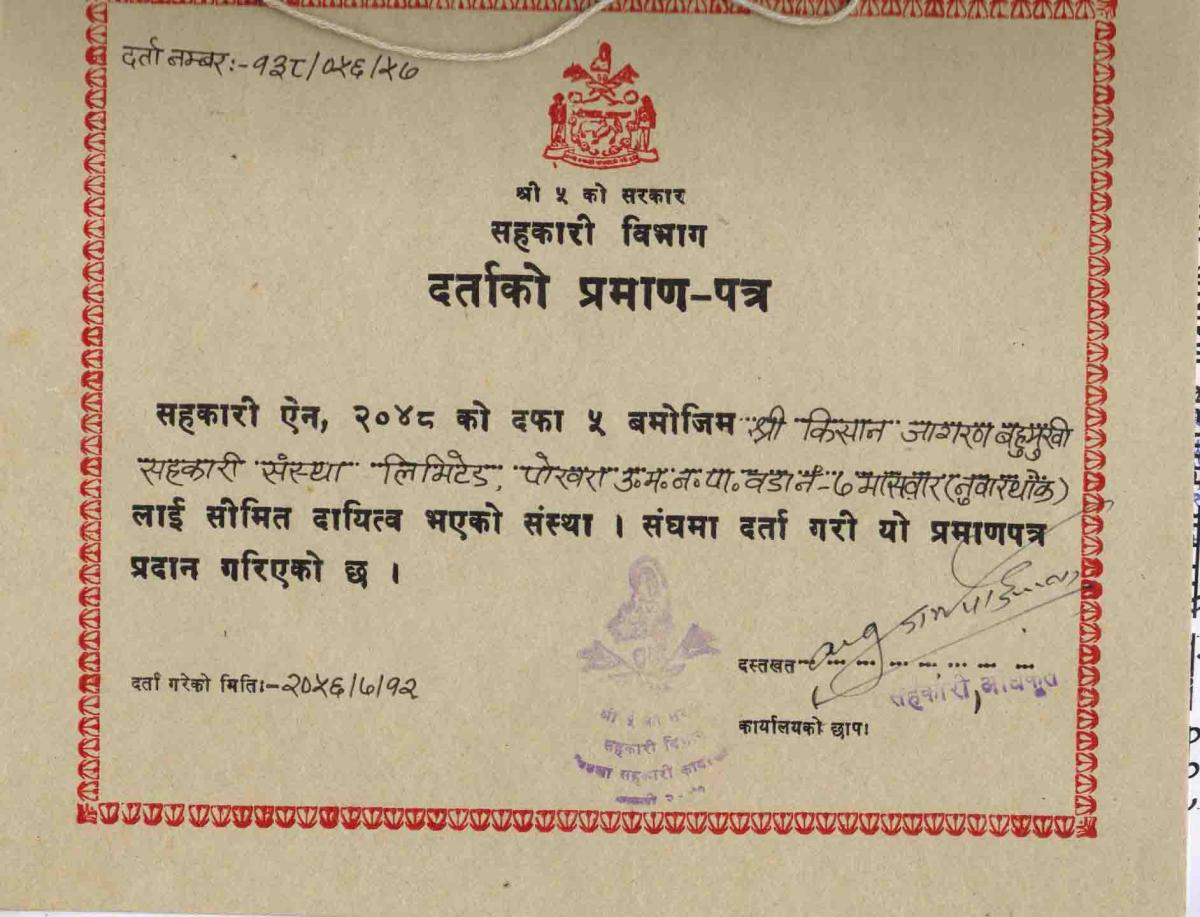 दर्ता नम्बर:-१३८/०५६/५७
श्री ५ को सरकार
सहकारी विभाग
दर्ताको प्रमाण-पत्र
सहकारी ऐन, २०४८ को दफा ५ बमोजिम श्री किसान जागरण बहुमुखी
सहकारी संस्था लिमिटेड, पोखरा उ.म.न.पा. वडा नं-७ मासवार (नुवारथोक)
लाई सीमित दायित्व भएको संस्था । संघमा दर्ता गरी यो प्रमाणपत्र
प्रदान गरिएको छ ।
दस्तखत
सहकारी अधिकृत
दर्ता गरेको मितिः-२०५६/७/१२
कार्यालयको छापः
श्री ५ को
सहकारी
सहकारी